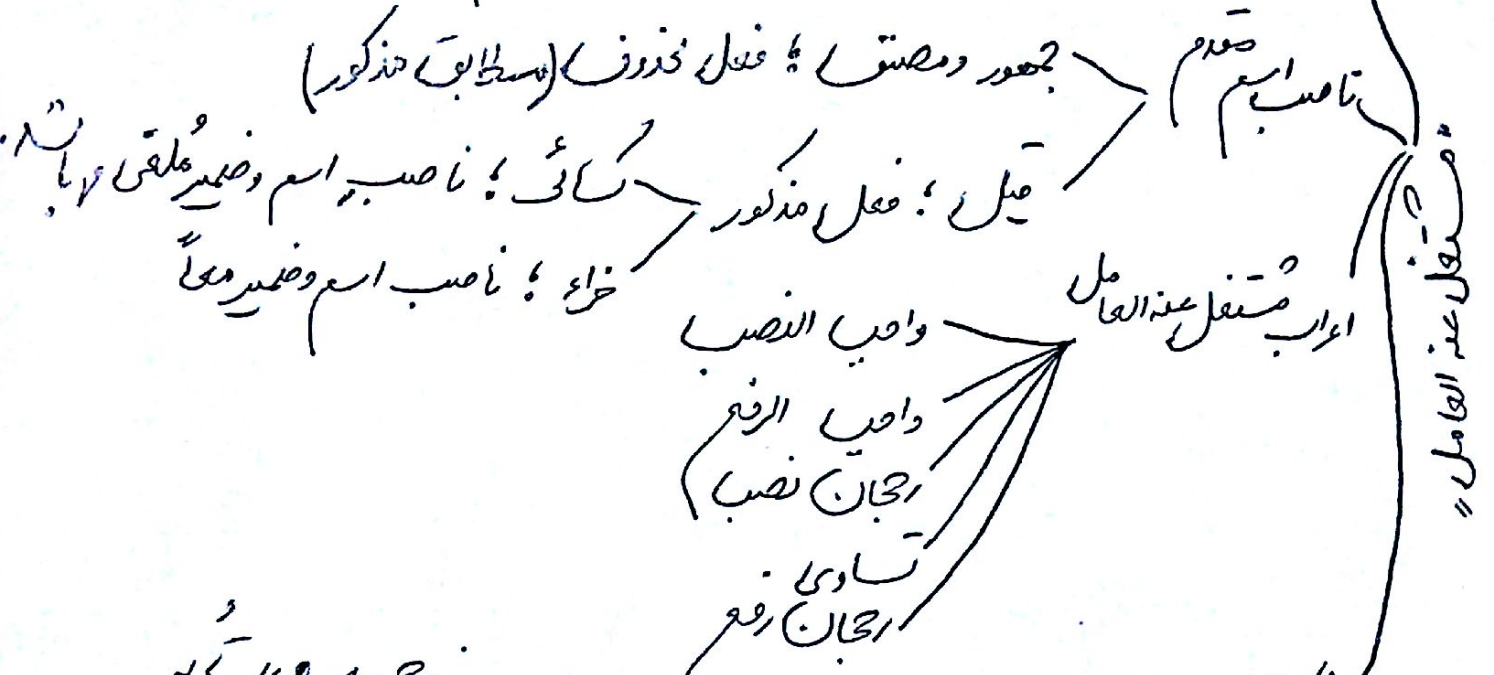 «مشتغل عنه العامل»
ناصب اسم مقدم
جمهور ومصنف ؛ فعل محذوف (مطابق مذکور)
قیل ؛ فعل مذکور
کسائی ؛ ناصب اسم وضمیر مُلقی باشد.
فراء ؛ ناصب اسم وضمیر معاً
اعراب مشتغل عنه العامل
واجب النصب
واجب الرفع
رجحان نصب
تساوی
رجحان رفع